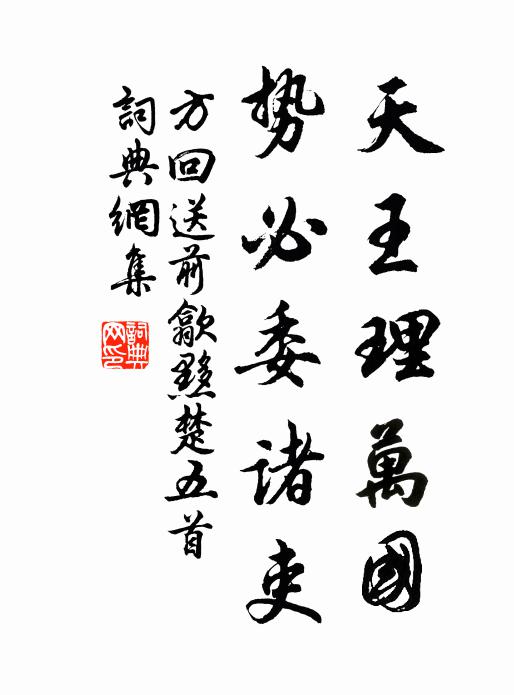 天王理萬國
势必委诸吏
方回送前歙黟楚五首
詞典網集
詞典
网印